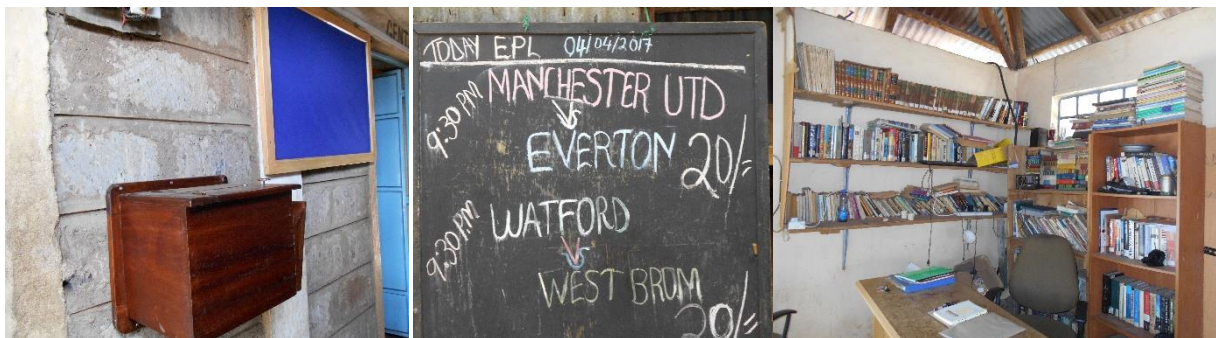 TODAY EPL 04/04/2017
9:30 PM MANCHESTER UTD
VS
EVERTON 20/=
9:30 P.M WATFORD
VS
WEST BROM
20/=